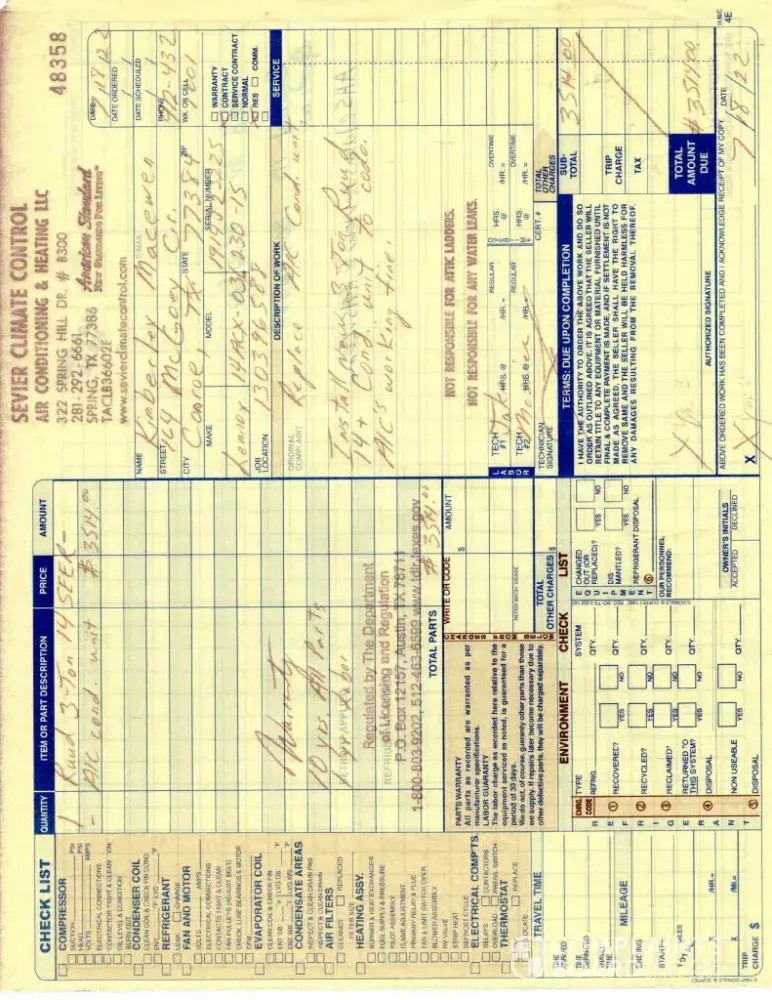 SEVIER CLIMATE CONTROL
AIR CONDITIONING & HEATING LLC
322 SPRING HILL DR. # B300
281-292-6661
SPRING, TX 77386
TACLB36602E
American Standard
www.sevierclimatecontrol.com
48358
DATE
7/18/22
DATE ORDERED
DATE SCHEDULED
NAME
Kimberley Macewen
E-MAIL
PHONE
STREET
164 McGoey Cr.
WK. OR CELL
CITY
Conroe,
STATE
TX
ZIP
77384
MAKE
Lennox
MODEL
14ACX-036-230-15
SERIAL NUMBER
JOB LOCATION
30396588
WARRANTY
CONTRACT
SERVICE CONTRACT
NORMAL
RES
COMM.
DESCRIPTION OF WORK
SERVICE
ORIGINAL COMPLAINT
Replace A/C Cond unit.
Install new 3-Ton Ruud
A/C Cond unit to code.
A/C's working fine.
NOT RESPONSIBLE FOR ATTIC LADDERS.
NOT RESPONSIBLE FOR ANY WATER LEAKS.
LABOR
TECH #1
HRS. @
REGULAR
/HR. =
HRS. @
OVERTIME
/HR. =
TECH #2
HRS. @
REGULAR
/HR. =
HRS. @
OVERTIME
/HR. =
TECHNICIAN SIGNATURE
CERT. #
TOTAL OTHER CHARGES
TERMS: DUE UPON COMPLETION
I HAVE THE AUTHORITY TO ORDER THE ABOVE WORK AND DO SO
ORDER AS OUTLINED ABOVE. IT IS AGREED THAT THE SELLER WILL
RETAIN TITLE TO ANY EQUIPMENT OR MATERIAL FURNISHED UNTIL
FINAL & COMPLETE PAYMENT IS MADE, AND IF SETTLEMENT IS NOT
MADE AS AGREED, THE SELLER SHALL HAVE THE RIGHT TO
REMOVE SAME AND THE SELLER WILL BE HELD HARMLESS FOR
ANY DAMAGES RESULTING FROM THE REMOVAL THEREOF.
SUB-TOTAL
3514.00
TRIP CHARGE
TAX
TOTAL AMOUNT DUE
$3514.00
AUTHORIZED SIGNATURE
ABOVE ORDERED WORK HAS BEEN COMPLETED AND I ACKNOWLEDGE RECEIPT OF MY COPY
DATE
7/18/22
X
4E
QUANTITY
ITEM OR PART DESCRIPTION
PRICE
AMOUNT
1
Ruud 3-Ton 14 SEER-
- A/C cond. unit
$3514.00
Warranty
10 yrs All Parts
1 yr labor
Regulated by The Department
of Licensing and Regulation
P.O. Box 12157, Austin, TX 78711
1-800-803-9202, 512-463-6599 www.tdlr.texas.gov
TOTAL PARTS
$3514.00
PARTS WARRANTY
All parts as recorded are warranted as per
manufacturer specifications.
LABOR GUARANTY
The labor charge as recorded here relative to the
equipment serviced as noted, is guaranteed for a
period of 30 days.
We do not, of course, guaranty other parts than those
we supply. If repairs later become necessary due to
other defective parts, they will be charged separately.
WRITE OR CODE
AMOUNT
$
TOTAL OTHER CHARGES $
ENVIRONMENT CHECK LIST
CHRG. CODE
TYPE REFRIG.
SYSTEM QTY.
RECOVERED?
YES
NO
QTY.
RECYCLED?
YES
NO
QTY.
RECLAIMED?
YES
NO
QTY.
RETURNED TO THIS SYSTEM?
YES
NO
QTY.
DISPOSAL
NON USEABLE
QTY.
DISPOSAL
EQUIPMENT
CHANGED OUT (OR REPLACED)?
YES
NO
DISMANTLED?
YES
NO
REFRIGERANT DISPOSAL
OUR PERSONNEL RECOMMEND:
OWNER'S INITIALS
ACCEPTED
DECLINED
CHECK LIST
COMPRESSOR
SUCTION
PSI
HEAD
PSI
VOLTS
AMPS
ELECTRICAL CONNECTIONS
CONTACTOR TIGHT & CLEAN
OIL LEVEL & CONDITION
BURN OUT
CONDENSER COIL
CLEAN COIL & CHECK FIN COND.
REFRIGERANT
LEAK
CHARGE
FAN AND MOTOR
VOLTS
AMPS
ELECTRICAL CONNECTIONS
CONTACTS TIGHT & CLEAN
FAN PULLEYS (ADJUST BELT)
CHECK, LUBE BEARINGS & MOTOR
EVAPORATOR COIL
CLEAN COIL & CHECK FIN
CONDENSATE AREAS
INSPECT & CLEAN DRAIN PAN
INSPECT & CLEAN DRAIN
AIR FILTERS
CLEANED
REPLACED
FILTER SIZE
HEATING ASSY.
BURNER & HEAT EXCHANGER
FUEL SUPPLY & PRESSURE
PILOT ASSEMBLY
FLAME ADJUSTMENT
PRIMARY RELAY & FLUE
FAN & LIMIT SWITCH OPER
BLOWER ASSEMBLY
STRIP HEAT
DEFROST CYCLE
ELECTRICAL COMP'TS.
RELAYS
CONTACTORS
OVERLOAD
PRESS. SWITCH
THERMOSTAT
REPLACE
TRAVEL TIME
/HR. =
MILEAGE
/MI. =
TRIP CHARGE $